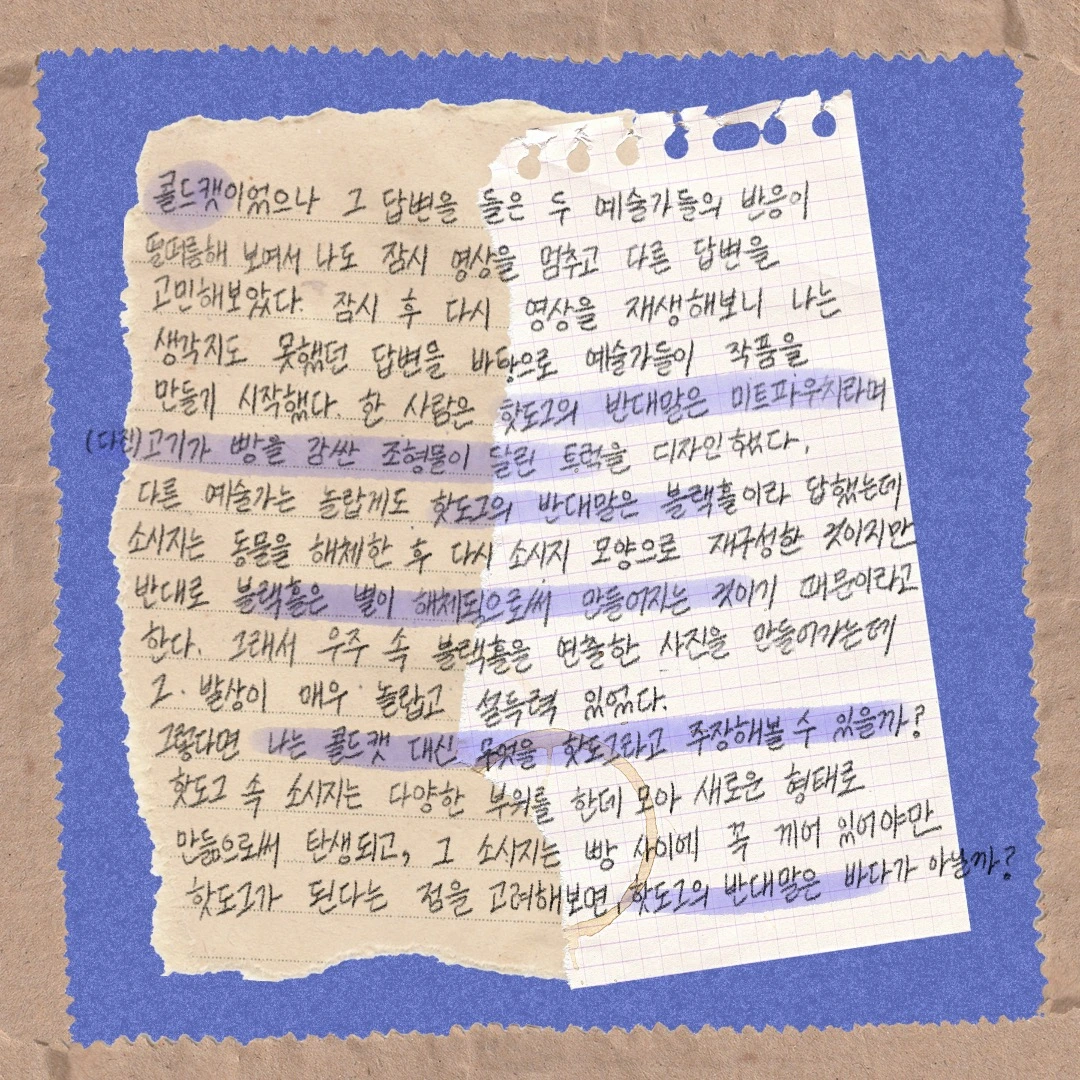 콜드캣이었으나 그 답변을 들은 두 예술가들의 반응이
떨떠름해 보여서 나도 잠시 영상을 멈추고 다른 답변을
고민해보았다. 잠시 후 다시 영상을 재생해보니 나는
생각지도 못했던 답변을 바탕으로 예술가들이 작품을
만들기 시작했다. 한 사람은 핫도그의 반대말은 미트파우치라며
고기가 빵을 감싼 조형물이 달린 트럭을 디자인했다,
다른 예술가는 놀랍게도 핫도그의 반대말은 블랙홀이라 답했는데
소시지는 동물을 해체한 후 다시 소시지 모양으로 재구성한 것이지만
반대로 블랙홀은 별이 해체됨으로써 만들어지는 것이기 때문이라고
한다. 그래서 우주 속 블랙홀을 연출한 사진을 만들어가는데
그 발상이 매우 놀랍고 설득력 있었다.
그렇다면 나는 콜드캣 대신 무엇을 핫도그라고 주장해볼 수 있을까?
핫도그 속 소시지는 다양한 부위를 한데 모아 새로운 형태로
만듦으로써 탄생되고, 그 소시지는 빵 사이에 꼭 끼어 있어야만
핫도그가 된다는 점을 고려해보면, 핫도그의 반대말은 바다가 아닐까?